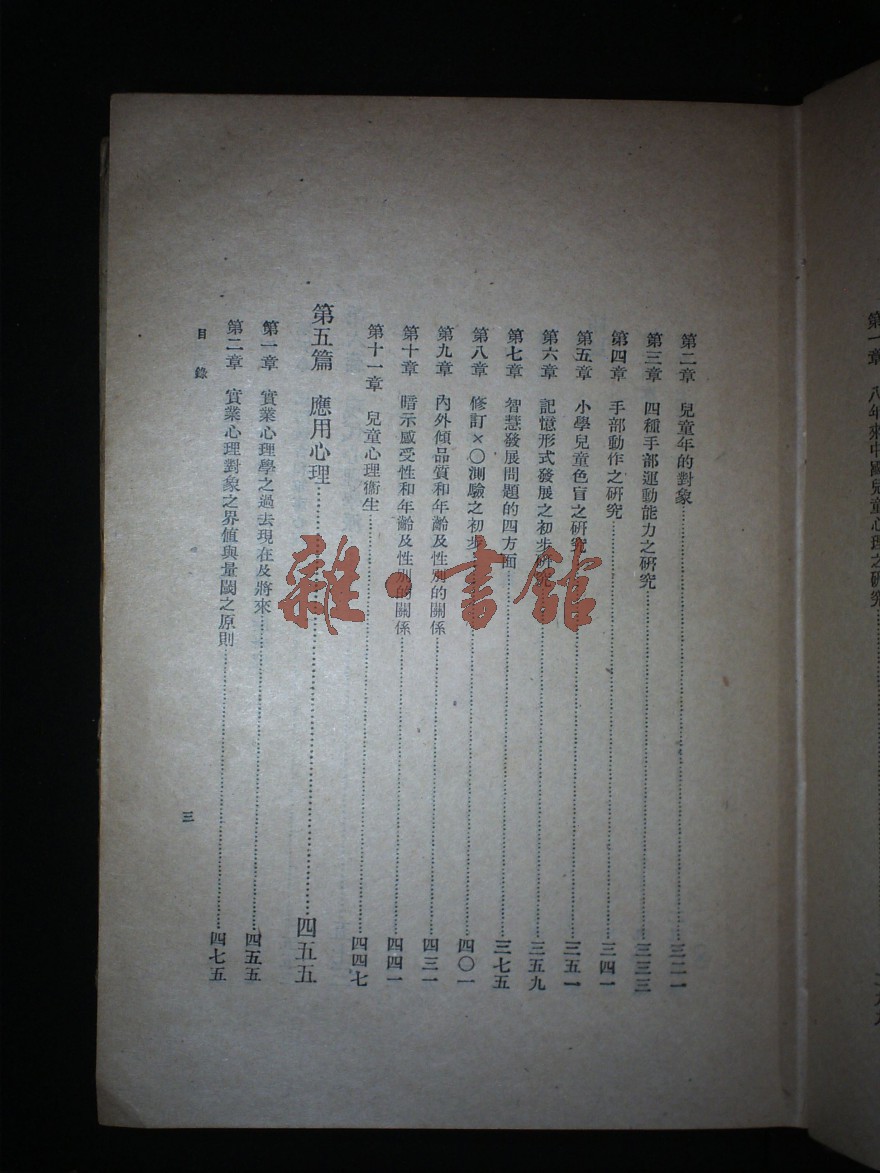 第一章 八年來中國兒童心理之研究
第二章 兒童年的對象 三二一
第三章 四種手部運動能力之研究 三三三
第四章 手部動作之研究 三四一
第五章 小學兒童色盲之研究 三五一
第六章 記憶形式發展之初步研究 三五九
第七章 智慧發展問題的四方面 三七五
第八章 修訂×〇測驗之初步 四〇一
第九章 內外傾品質和年齡及性別的關係 四三一
第十章 暗示感受性和年齡及性別的關係 四四一
第十一章 兒童心理衞生 四四七
第五篇 應用心理 四五五
第一章 實業心理學之過去現在及將來 四五五
第二章 實業心理對象之界值與量閾之原則 四七五
目錄
三
雜·書館